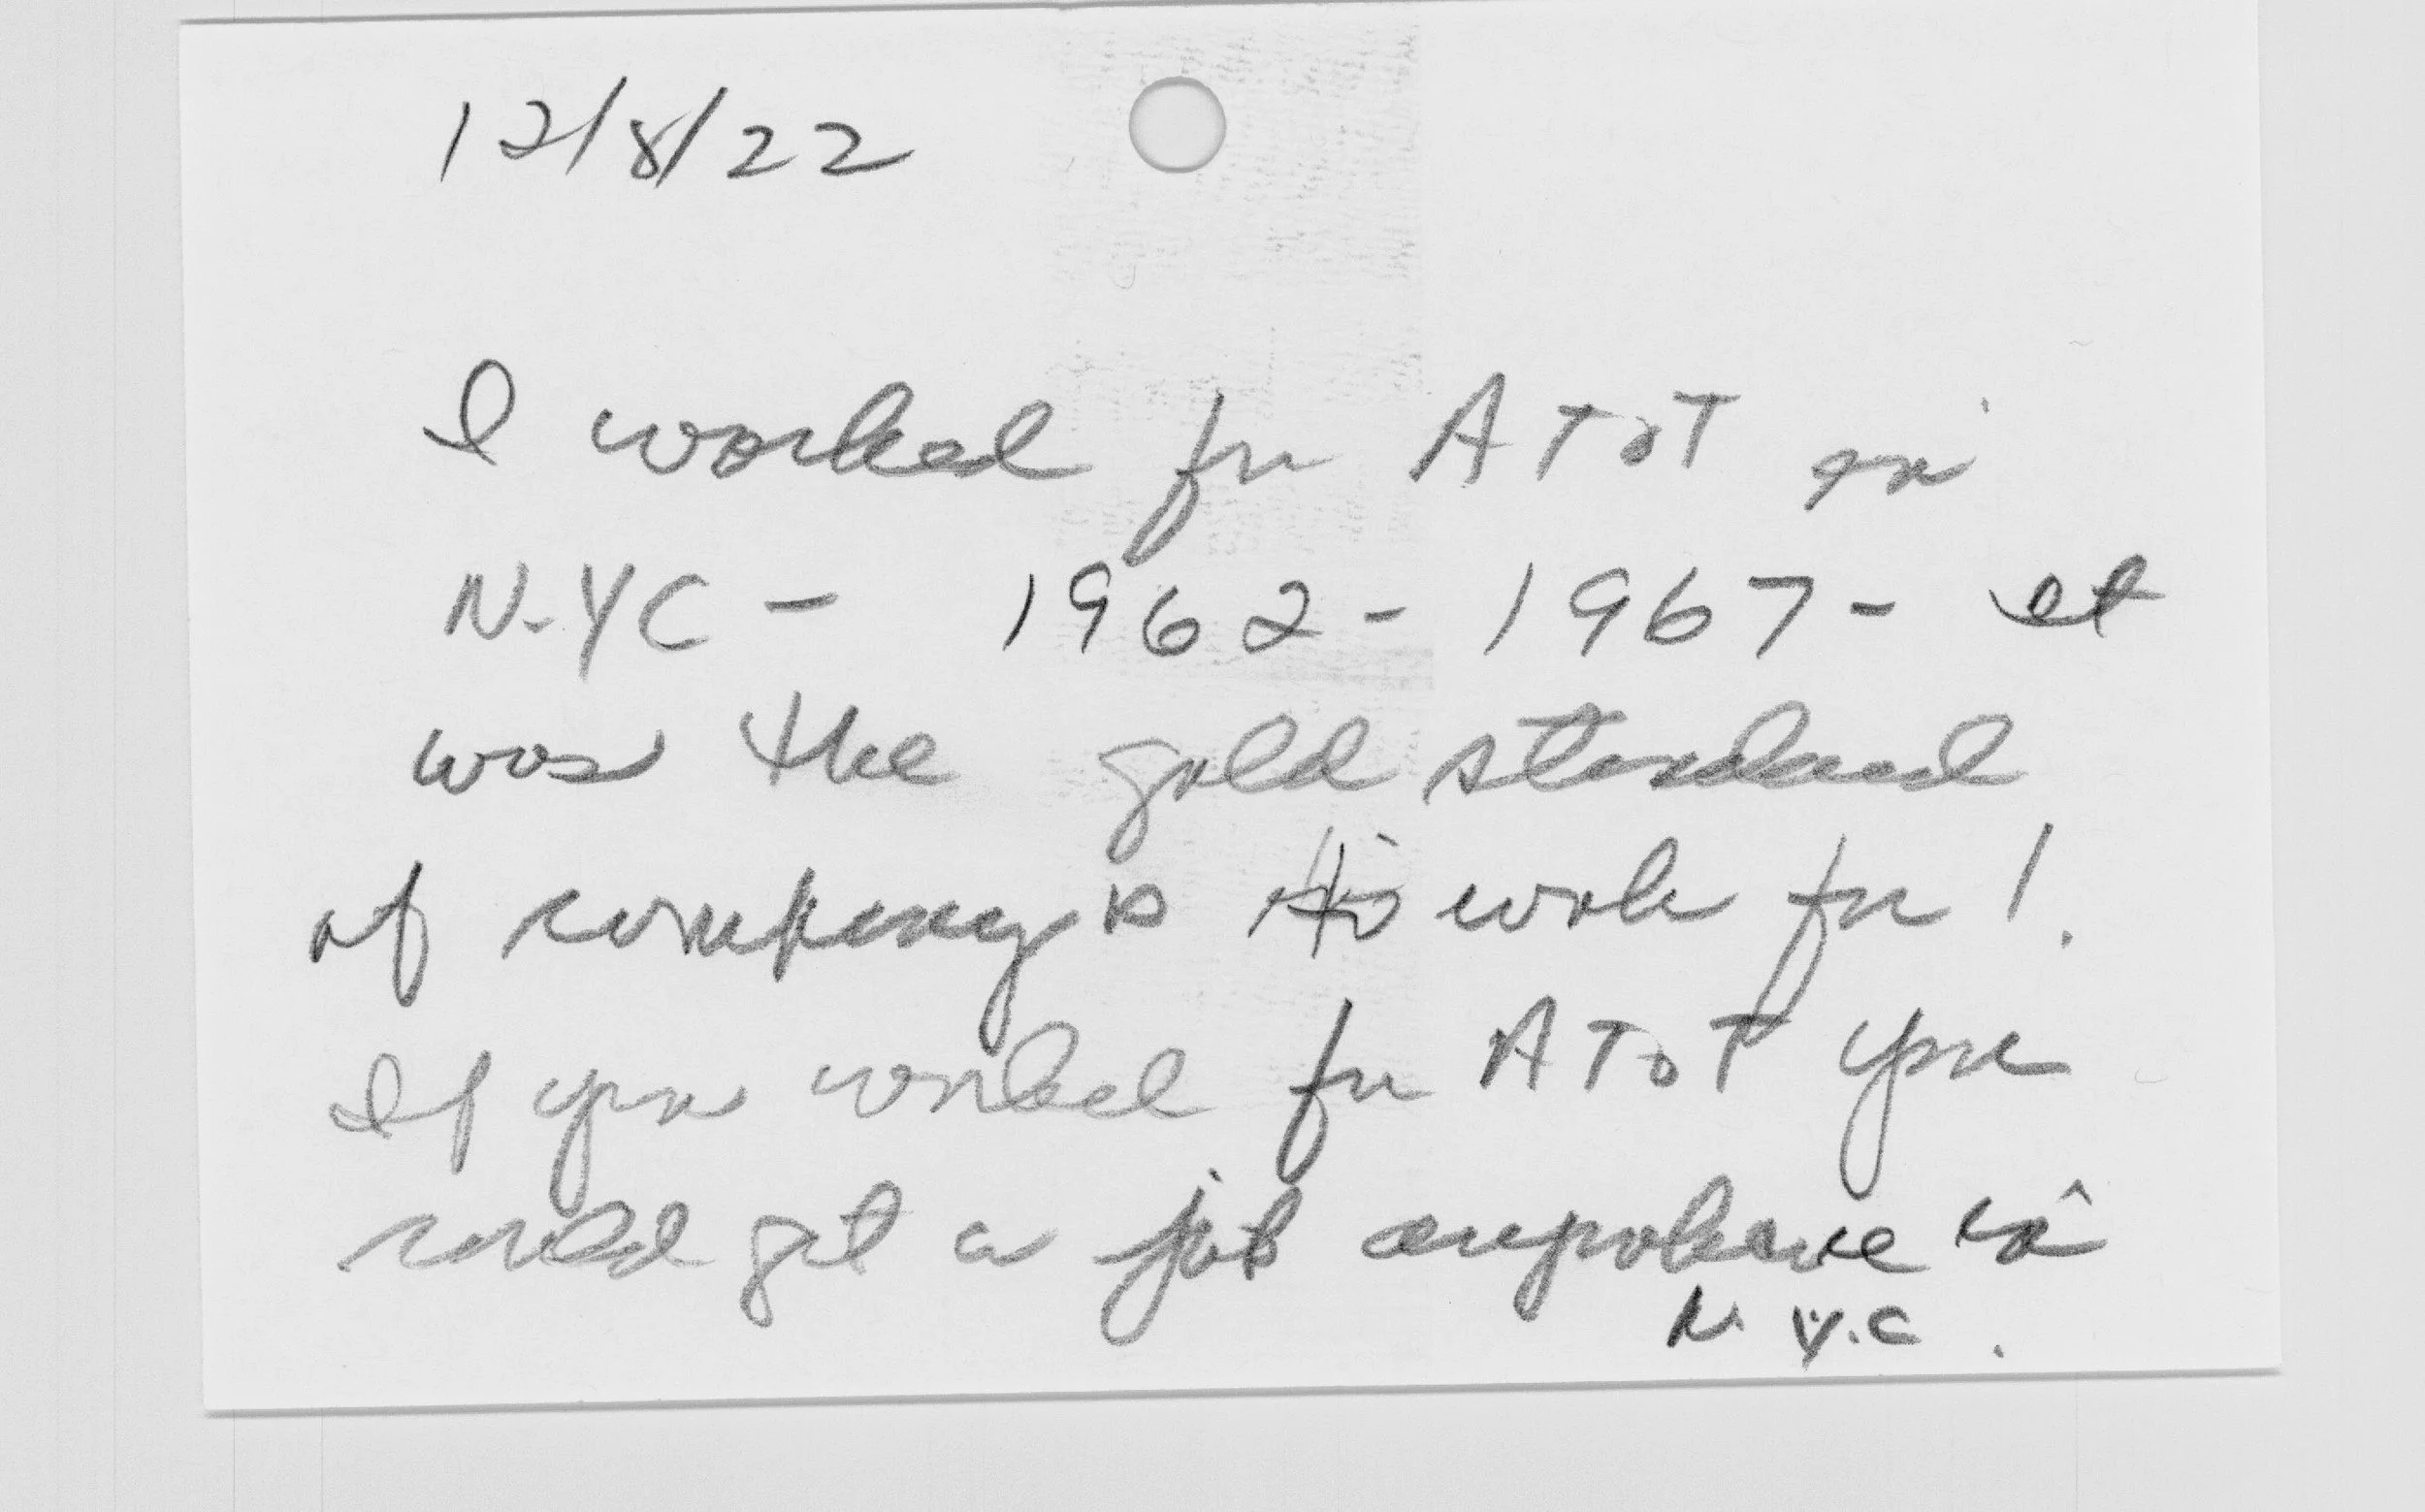 12/8/22
I worked for AT&T in
N.YC - 1962 - 1967 - It
was the gold standard
of company to work for!.
If you worked for AT&T you
could get a job anywhere in
N.Y.C.